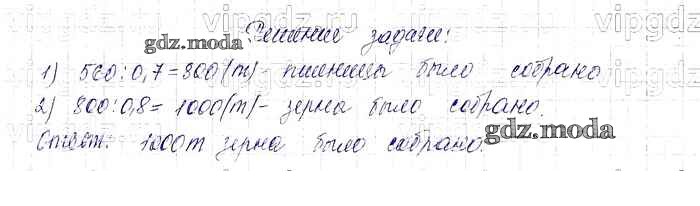 Решение задачи:
gdz.moda
1) 560:0,7=800(т)- пшеницы было собрано
2) 800:0,8= 1000(т)- зерна было собрано.
gdz.moda
Ответ: 1000т зерна было собрано.